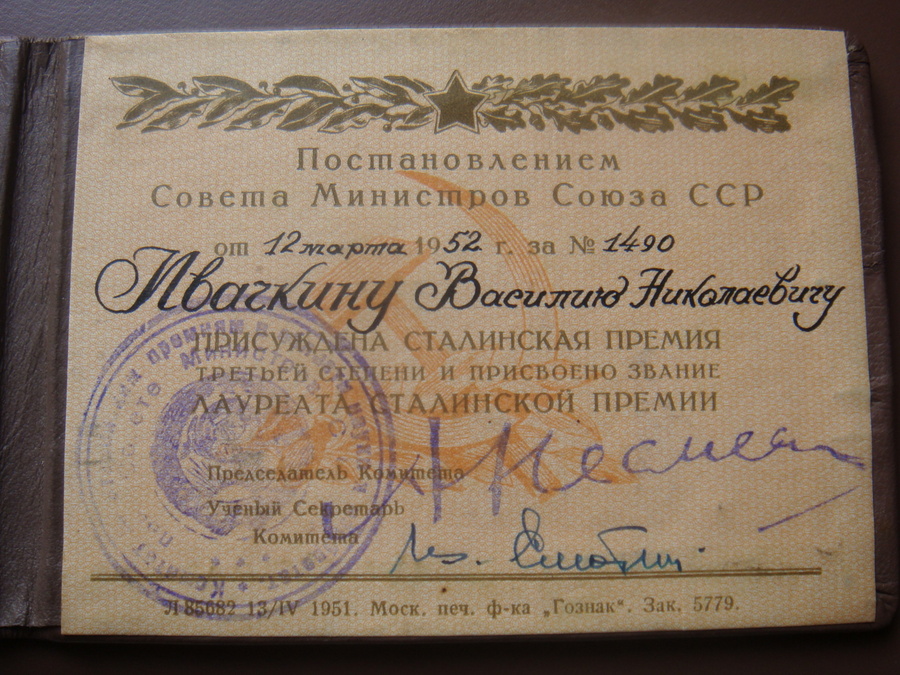 Постановлением
Совета Министров Союза ССР
от 12 марта 1952 г. за № 1490
Ивачкину Василию Николаевичу
ПРИСУЖДЕНА СТАЛИНСКАЯ ПРЕМИЯ
ТРЕТЬЕЙ СТЕПЕНИ И ПРИСВОЕНО ЗВАНИЕ
ЛАУРЕАТА СТАЛИНСКОЙ ПРЕМИИ
Председатель Комитета
Учёный Секретарь
Комитета
Л 85682 13/IV 1951. Моск. печ. ф-ка „Гознак“. Зак. 5779.